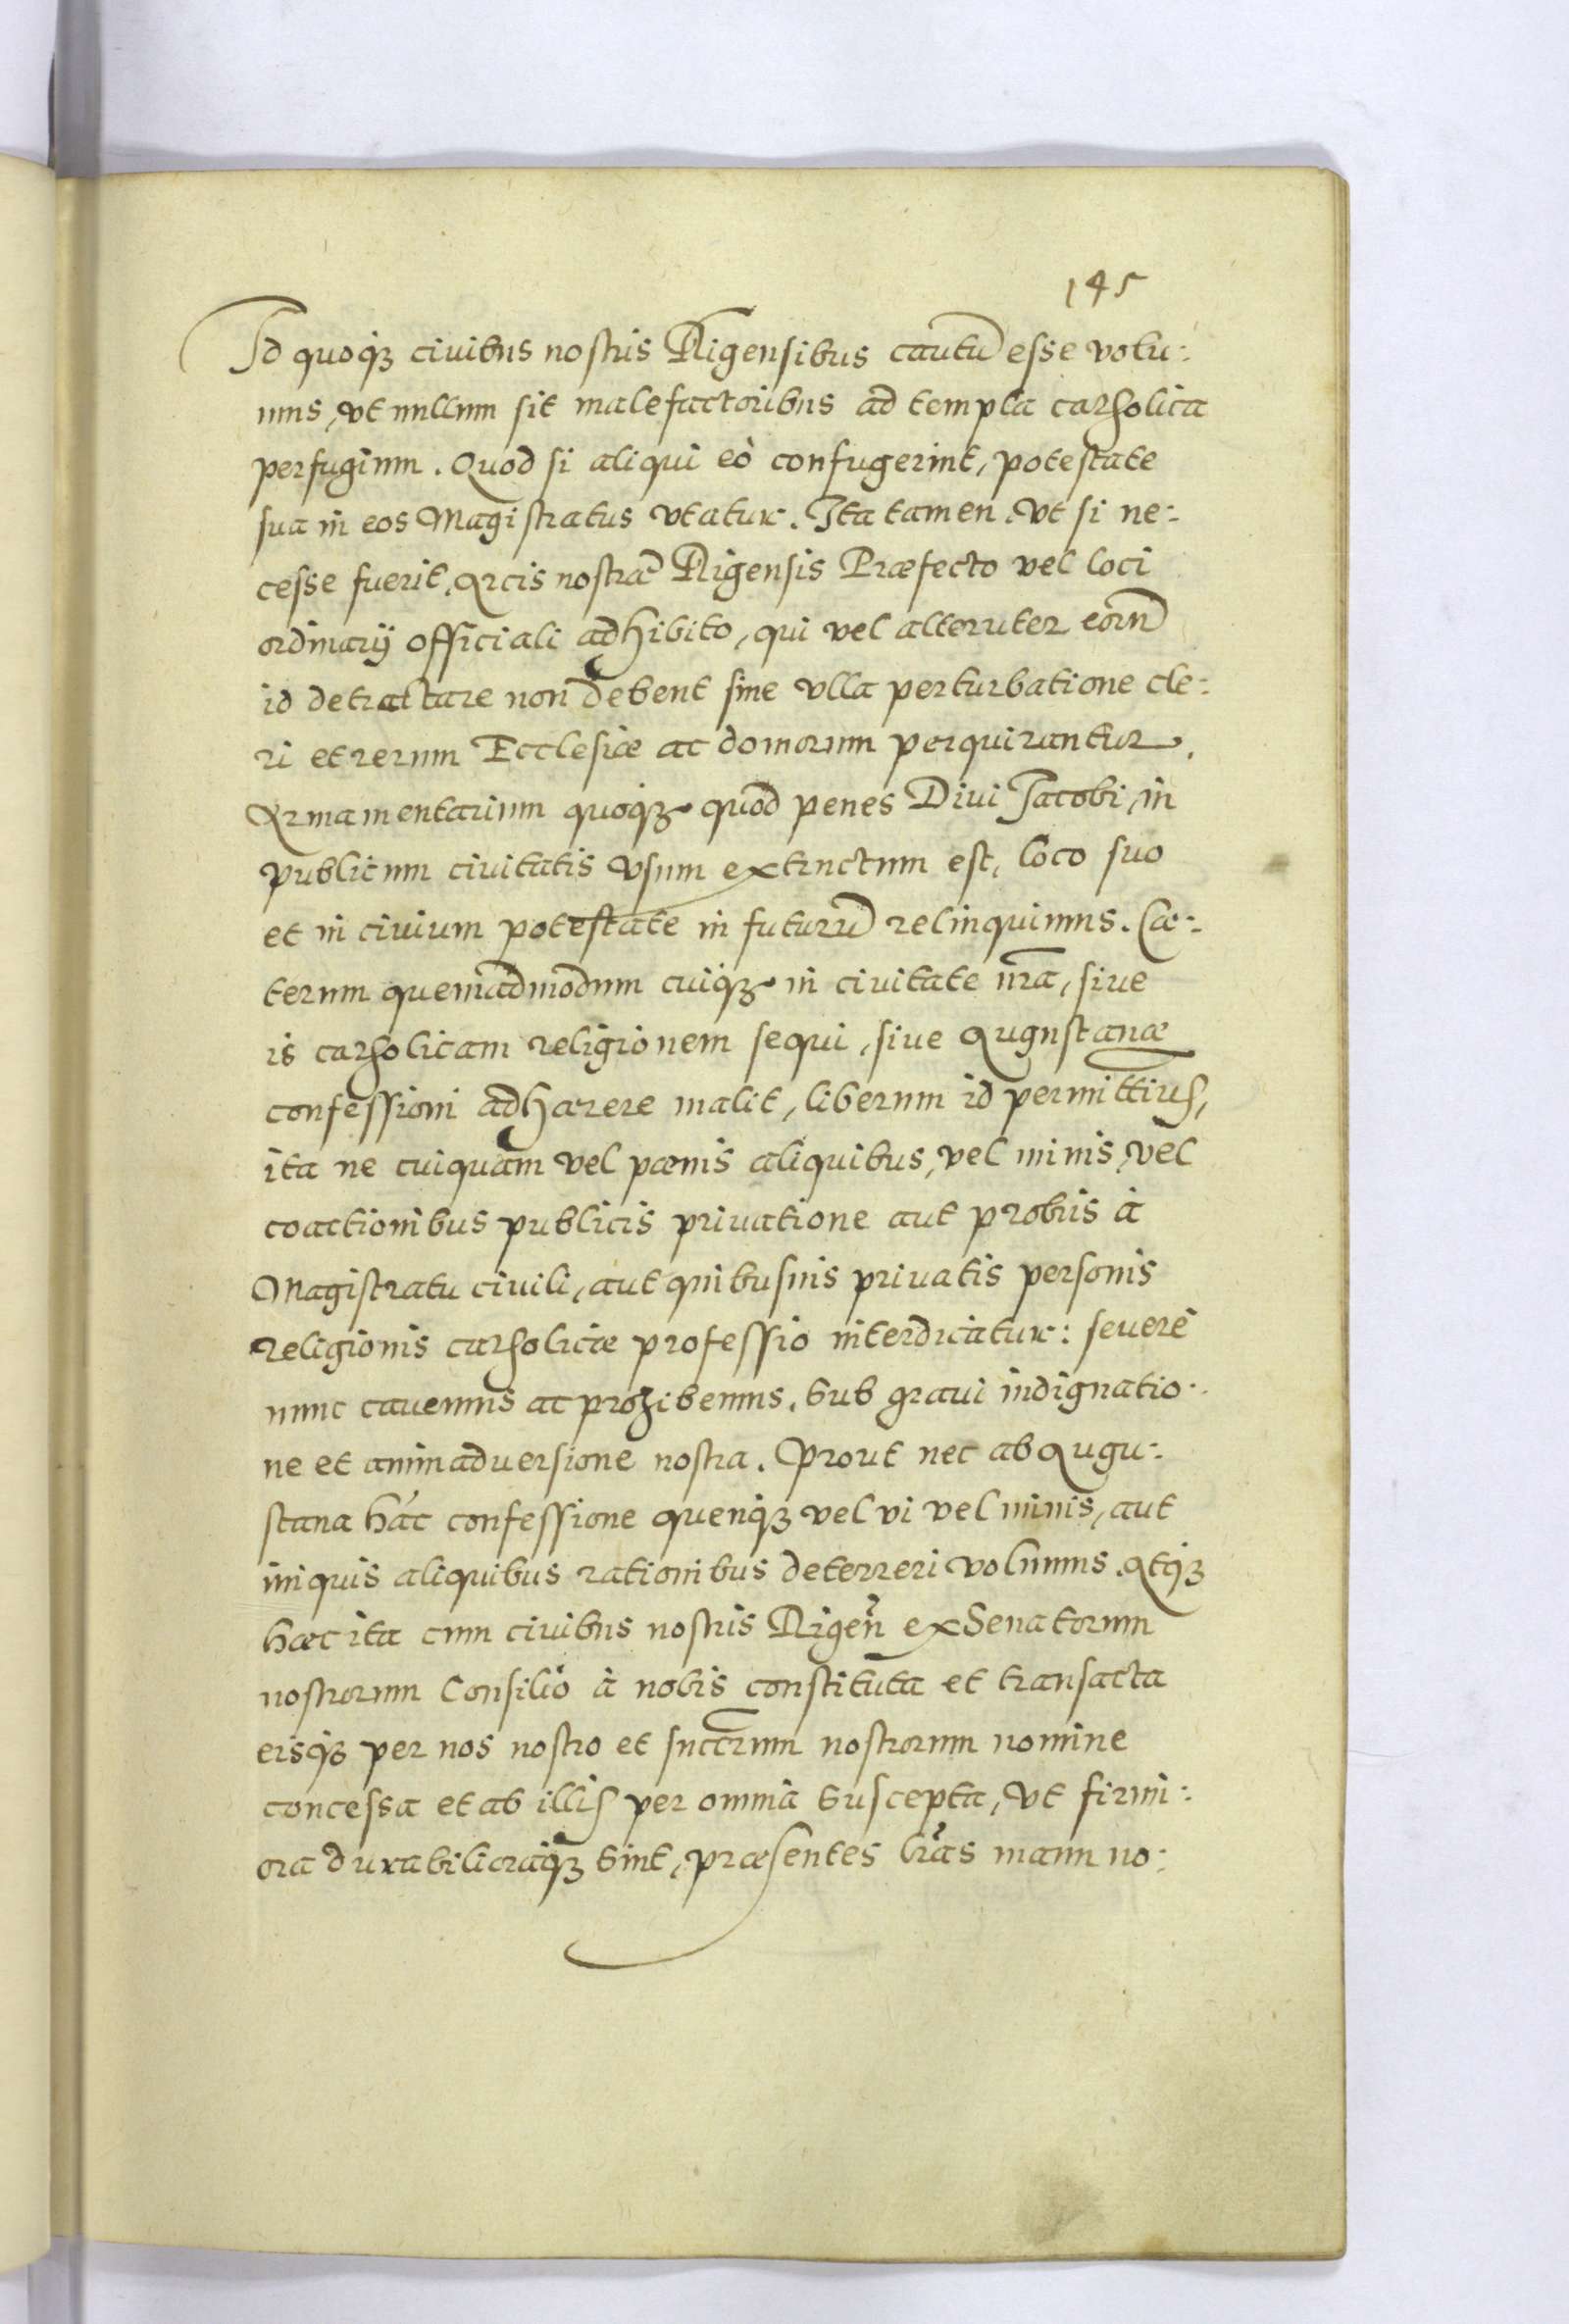 145
Id quoq₃ ciuibus nostris Rigensibus cautū esse volu:
mus, vt nullum sit malefactoribus ad templa catholica
perfugium. Quod si aliqui eò confugerint, potestate
sua in eos Magistratus vtatur. Ita tamen vt si ne:
cesse fuerit, Arcis nostræ Rigensis Præfecto vel loci
ordinarij officiali adhibito, qui vel alteruter eorū
id detractare non debent sine vlla perturbatione cle:
ri et rerum Ecclesiæ ac domorum perquirantur.
Armamentarium quoq₃ quod penes Diui Jacobi, in
publicum ciuitatis vsum extructum est, loco suo
et in ciuium potestate in futurū relinquimus. Cæ:
terum quemadmodum cuiq₃ in ciuitate nrā, siue
is catholicam religionem sequi, siue Augustanæ
confessioni adhærere malit, liberum id permittimus,
ita ne cuiquam vel pœnis aliquibus, vel minis, vel
coactionibus publicis priuatione aut probris à
Magistratu ciuili, aut quibusuis priuatis personis
religionis catholicæ professio interdicatur: seuerè
nunc cauemus ac prohibemus, sub graui indignatio:
ne et animaduersione nostra. Prout nec ab Augu:
stana hác confessione quenq₃ vel vi vel minis, aut
iniquis aliquibus rationibus deterreri volumus. Atq₃
hæc ita cum ciuibus nostris Rigen̄ ex Senatorum
nostrorum Consilio à nobis constituta et transacta
eisq₃ per nos nostro et succrum nostrorum nomine
concessa et ab illis per omnia suscepta, vt firmi:
ora durabilioraq₃ sint, præsentes lrās manu no: